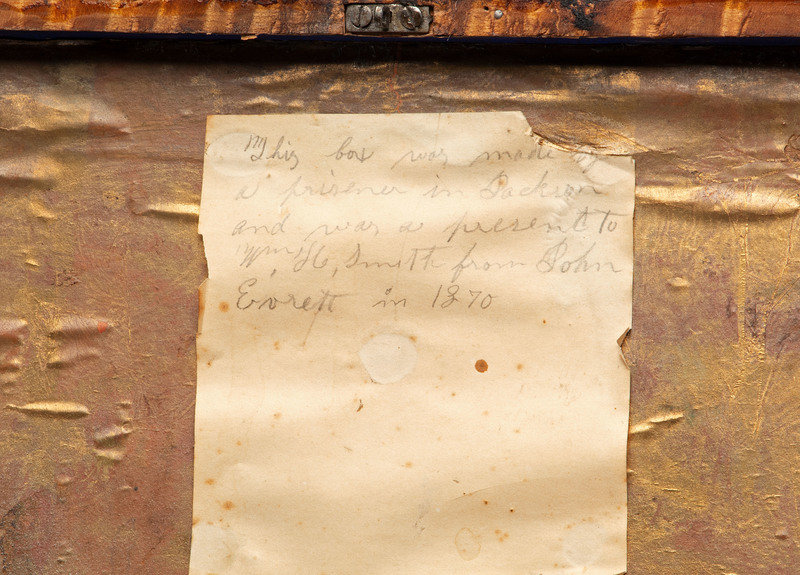 This box was made by
a prisener in Jackson
and was a present to
Wm, H, Smith from John
Everett in 1870